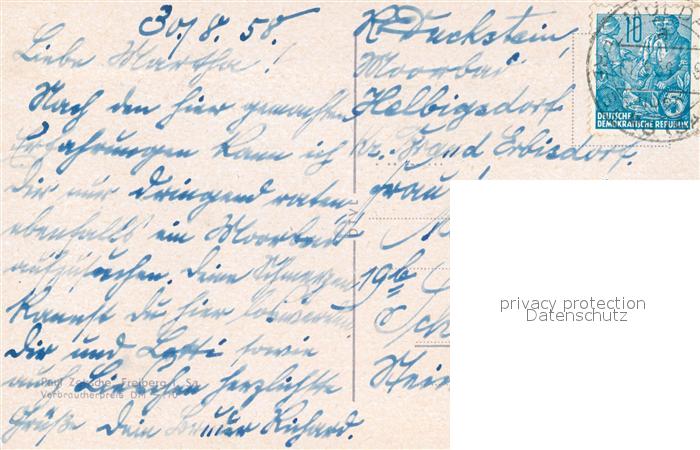 30./8. 58.
Liebe Martha!
Nach den hier gemachten
Erfahrungen kann ich
Dir nur dringend raten
ebenfalls ein Moorbad
aufzusuchen. Deine Schmerzen
kannst Du hier loswerden
Dir und Lotti, sowie
auch Lieschen herzlichste
Grüße Dein Richard.
Paul Zetzsche, Freiberg i. Sa.
Verbraucherpreis DM
R. Duckstein,
Moorbad
Helbigsdorf
Kr. Brand Erbisdorf.
Frau
19b
10
5
DEUTSCHE
DEMOKRATISCHE REPUBLIK
privacy protection
Datenschutz